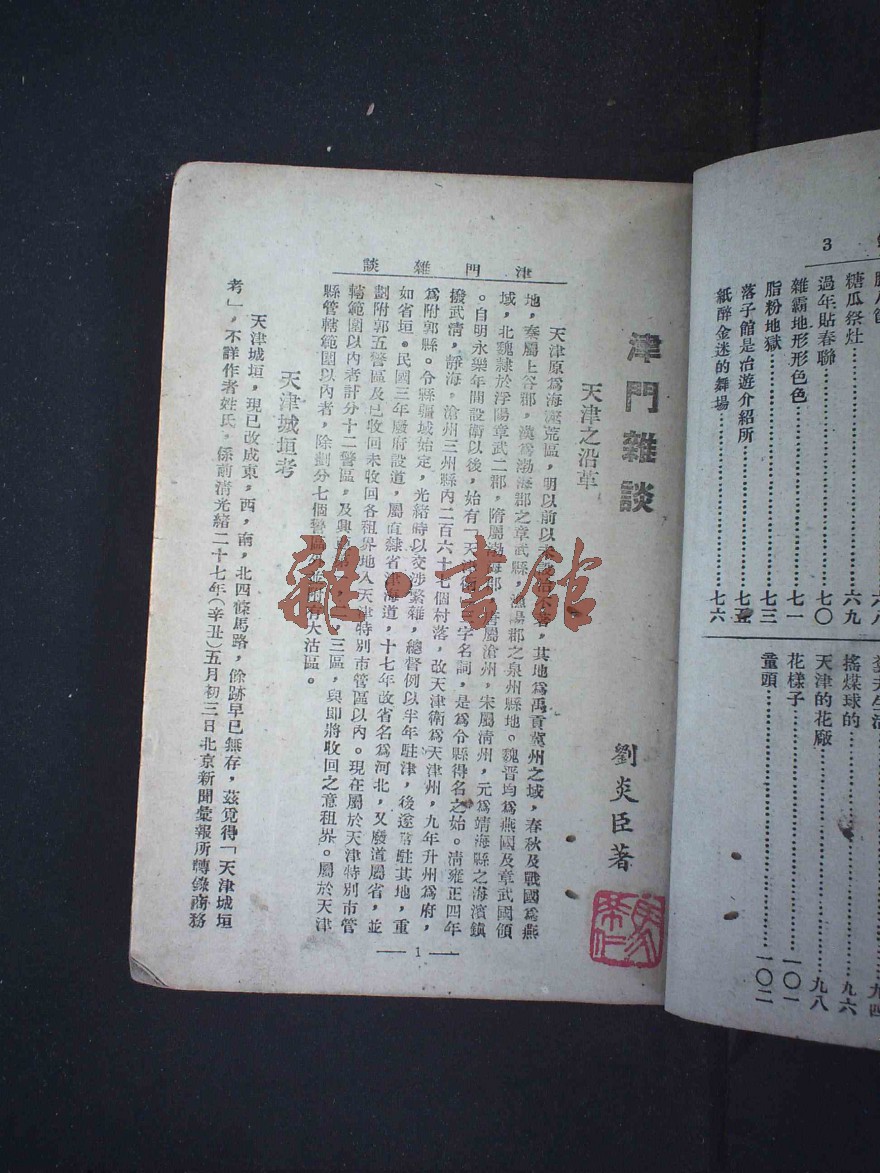 3
糖瓜祭灶⋯⋯六九
過年貼春聯⋯⋯七〇
雜霸地形形色色⋯⋯七一
脂粉地獄⋯⋯七三
落子館是冶遊介紹所⋯⋯七五
紙醉金迷的舞場⋯⋯七六
九四
搖煤球的⋯⋯九六
天津的花廠⋯⋯九八
花樣子⋯⋯一〇一
量頭⋯⋯一〇二
津門雜談
津門雜談
劉炎臣著
天津之沿革
天津原為海濱荒區，明以前以未設治，其地為禹貢冀州之域，春秋及戰國為燕
地，秦屬上谷郡，漢為渤海郡之章武縣，漁陽郡之泉州縣地。魏晋均為燕國及章武國領
域，北魏隸於浮陽章武二郡，隋屬渤海郡，唐屬滄州，宋屬清州，元為靖海縣之海濱鎮
。自明永樂年間設衛以後，始有「天津衛」三字名詞，是為今縣得名之始。清雍正四年
撥武清，靜海，滄州三州縣內二百六十七個村落，改天津衛為天津州，九年升州為府，
為附郭縣。今縣疆域始定，光緒時以交涉繁雜，總督例以半年駐津，後遂常駐其地，重
如省垣。民國三年廢府設道，屬直隸省津海道，十七年改省名為河北，又廢道屬省，並
劃附郭五警區及已收回未收回各租界地入天津特別市管區以內。現在屬於天津特別市管
轄範圍以內者計分十二警區，及興三區，與即將收回之意租界。屬於天津
縣管轄範圍以內者，除劃分七個警區外尚有大沽區。
天津城垣考
天津城垣，現已改成東，西，南，北四條馬路，餘跡早已無存，茲覓得「天津城垣
考」，不詳作者姓氏，係前清光緒二十七年（辛丑）五月初三日北京新聞彙報所轉錄商務
— 1 —
雜·書館